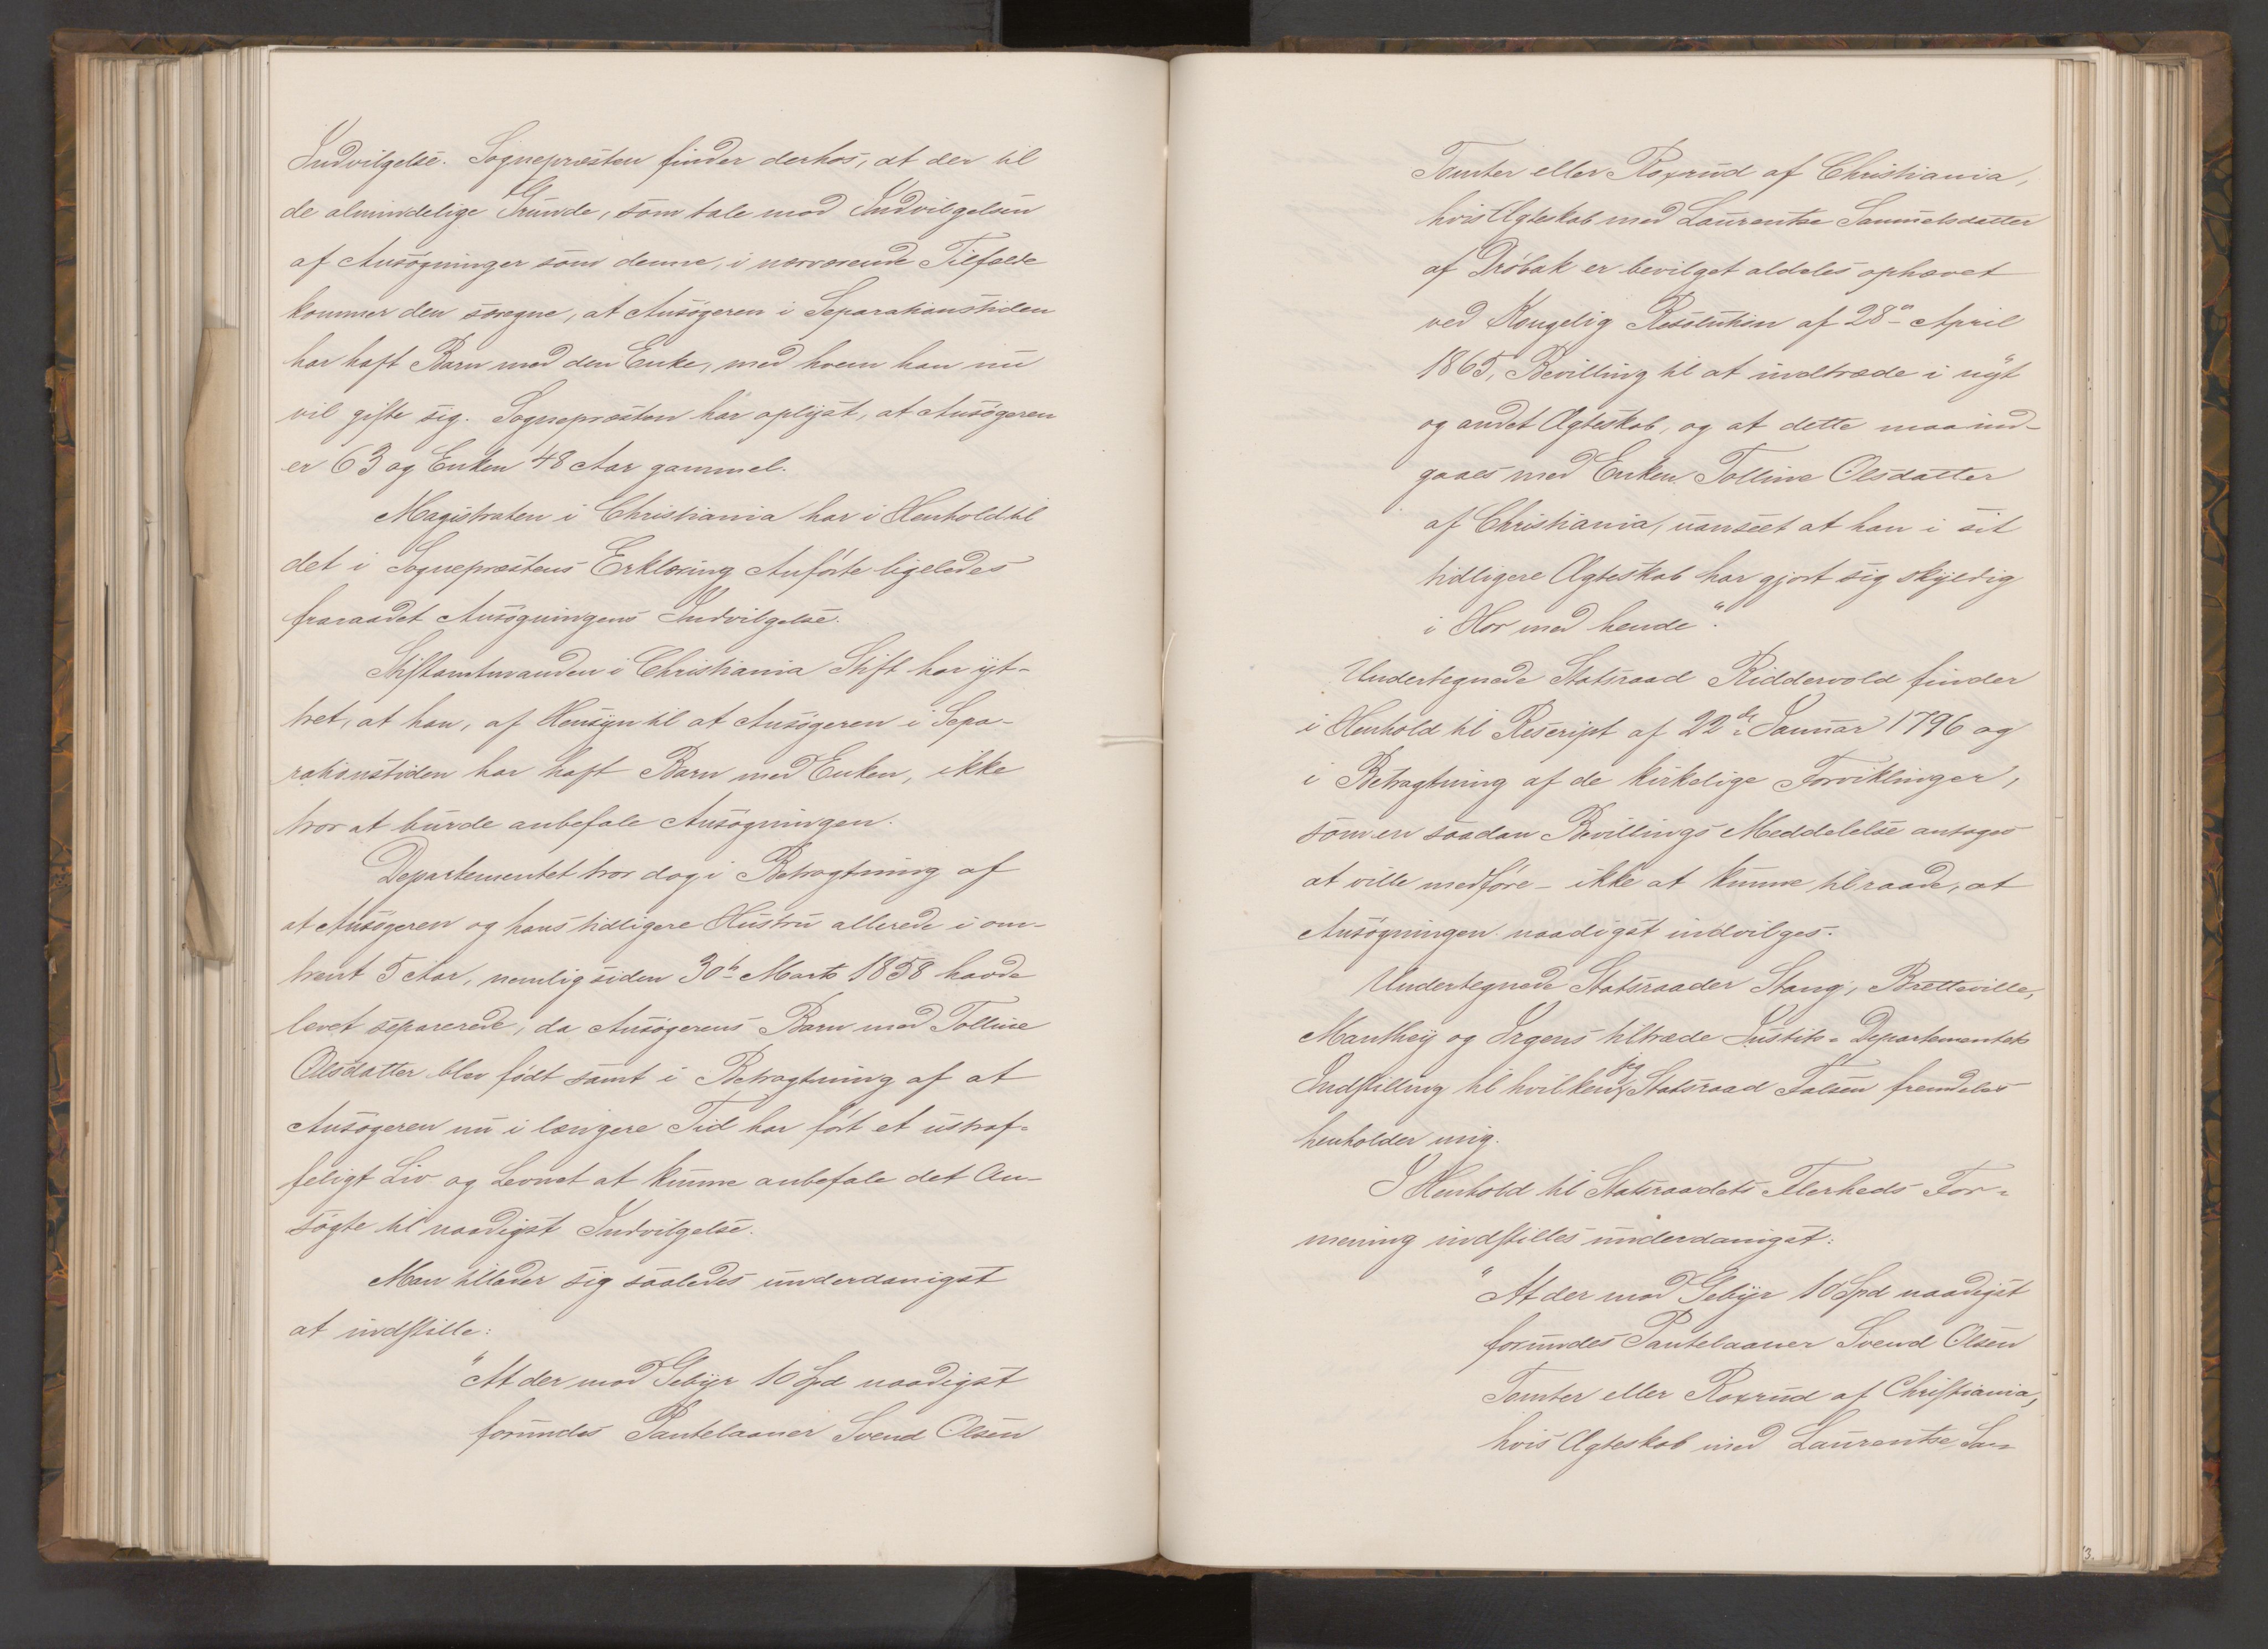 Indvilgelse. Sognepræsten finder derhos, at der til
de almindelige Grunde, som tale mod Indvilgelsen
af Ansøgninger som denne, i nærværende Tilfælde
kommer den særegne, at Ansøgeren i Separationstiden
har haft Barn med den Enke, med hvem han nu
vil gifte sig. Sognepræsten har oplyst, at Ansøgeren
er 63 og Enken 48 Aar gammel.
Magistraten i Christiania har i Henhold til
det i Sognepræstens Erklæring Anførte ligeledes
fraraadet Ansøgningens Indvilgelse.
Stiftamtmanden i Christiania Stift har yt-
tret, at han, af Hensyn til at Ansøgeren i Sepa-
rationstiden har haft Barn med Enken, ikke
tror at burde anbefale Ansøgningen.
Departementet tror dog i Betragtning af
at Ansøgeren og hans tidligere Hustru allerede i om-
trent 5 Aar, nemlig siden 30te Marts 1858 havde
levet separerede, da Ansøgerens Barn med Tolline
Olsdatter blev født samt i Betragtning af at
Ansøgeren nu i længere Tid har ført et ustraf-
feligt Liv og Levnet at kunne anbefale det An-
søgte til naadigst Indvilgelse.
Man tillader sig saaledes underdanigst
at indstille:
"At der mod Gebyr 10 Spd naadigst
forundes Pantelaaner Svend Olsen
Tomter eller Roxrud af Christiania,
hvis Ægteskab med Laurentse Samuelsdatter
af Drøbak er bevilget aldeles ophævet
ved Kongelig Resolution af 28de April
1865, Bevilling til at indtræde i nyt
og andet Ægteskab, og at dette maa ind-
gaaes med Enken Tolline Olsdatter
af Christiania, uanseet at han i sit
tidligere Ægteskab har gjort sig skyldig
i Hor med hende".
Undertegnede Statsraad Riddervold finder
i Henhold til Rescript af 22de Januar 1796 og
i Betragtning af de kirkelige Forviklinger,
som en saadan Bevillings Meddelelse antages
at ville medføre - ikke at kunne tilraade, at
Ansøgningen naadigst indvilges.
Undertegnede Statsraader Stang, Bretteville,
Manthey og Irgens tiltræde Justits-Departementets
Indstilling til hvilken jeg Statsraad Falsen fremdeles
henholder mig.
I Henhold til Statsraadets Fleerheds For-
mening indstilles underdanigst:
"At der mod Gebyr 10 Spd naadigst
forundes Pantelaaner Svend Olsen
Tomter eller Roxrud af Christiania,
hvis Ægteskab med Laurentse Sa-